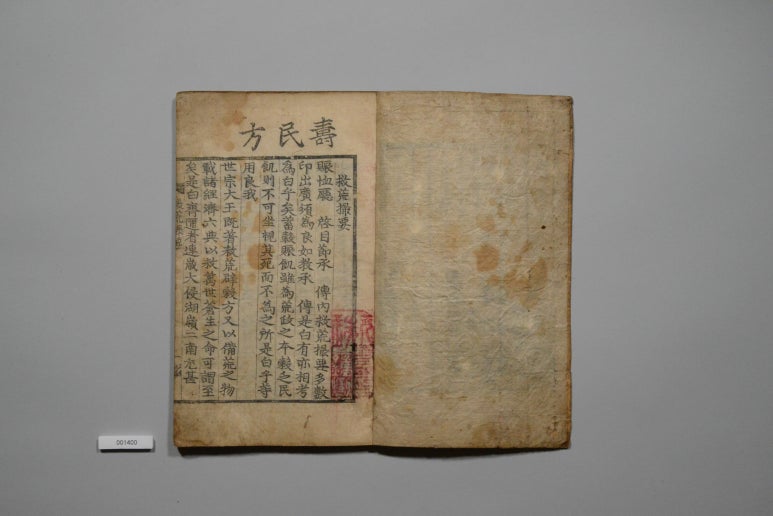 壽民方
救荒撮要
賑恤廳 啓目節承 傳內救荒撮要多數
印出廣頒爲良如敎承 傳是白有亦相考
爲白乎矣蓄穀賑飢雖爲荒政之本穀乏民
飢則不可坐視其死而不爲之所是白乎等
用良我
世宗大王旣著救荒辟穀方又以備荒之物
載諸經濟六典以救萬世蒼生之命可謂至
矣是白齊運看連歲大侵湖嶺二南尤甚
001400